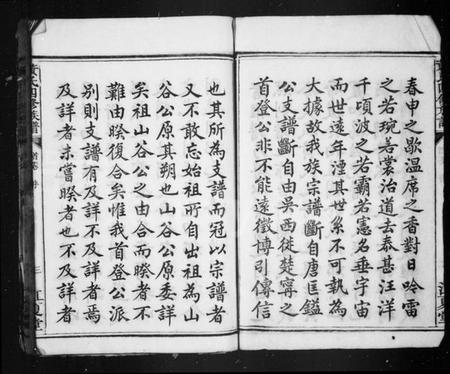 春申之歇溫席之香對日吟雷
之若琬善裳治道去泰甚汪洋
千頃波之若霸若憲名垂宇宙
而世遠年湮其世系不可執為
大據故我族宗譜斷自唐匡鎰
公支譜斷自由吳西徙楚寧之
首登公非不能遠徵博引傳信
也其所為支譜而冠以宗譜者
又不敢忘始祖所自出祖為山
谷公原其朔也山谷公原委詳
矣祖山谷公之由合而睽者不
難由睽復合矣惟我首登公派
別則支譜有及詳不及詳者焉
及詳者未嘗睽者也不及詳者
三
江夏堂